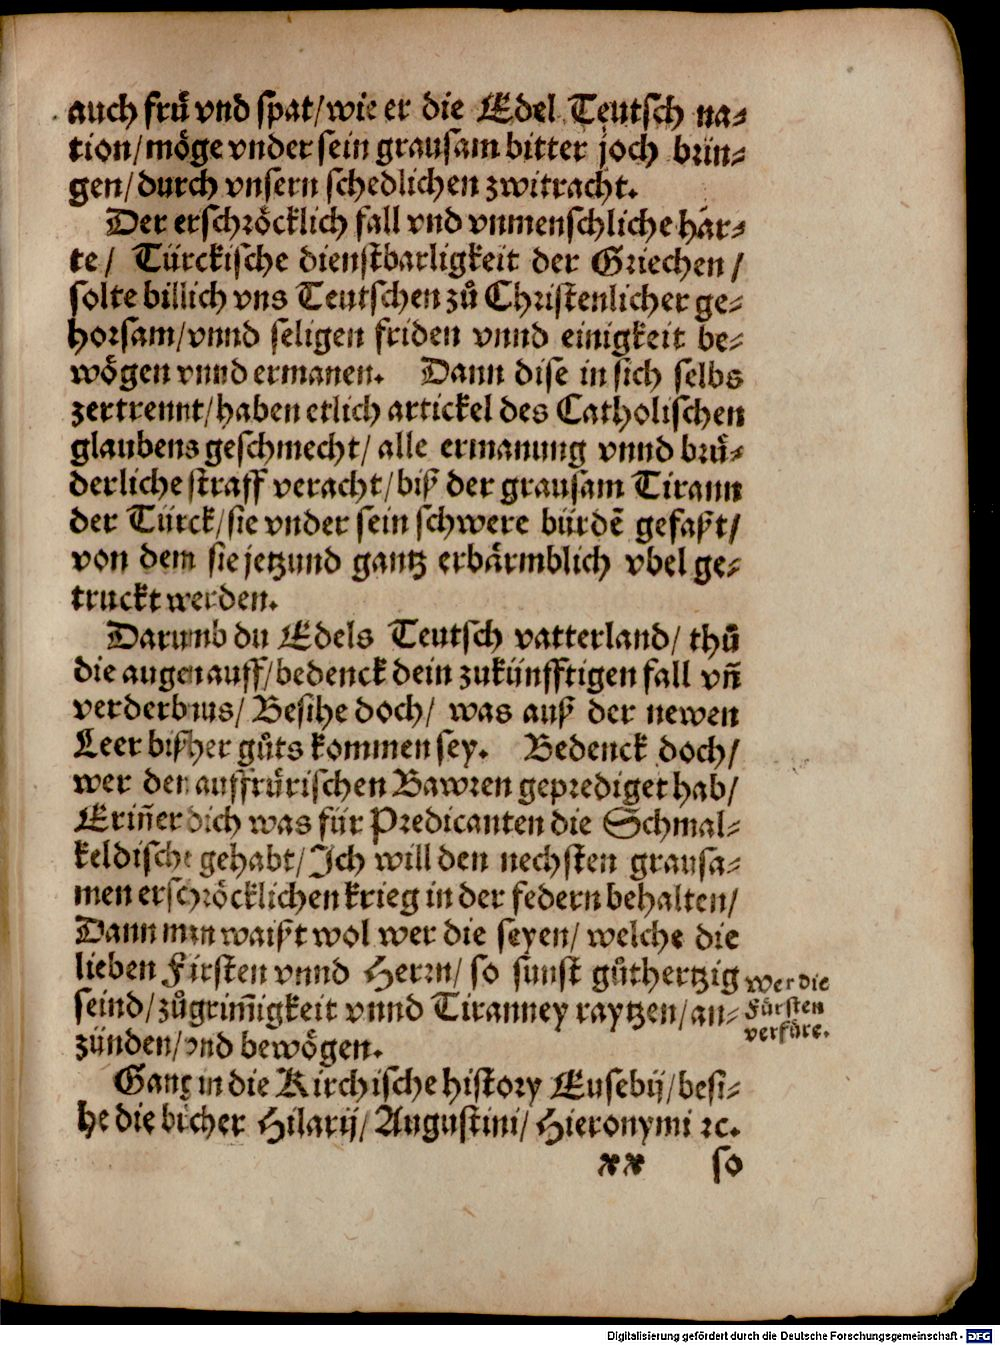 auch frů vnd spat/wie er die Edel Teutsch na-
tion/möge vnder sein grausam bitter joch brin-
gen/durch vnsern schedlichen zwitracht.
Der erschröcklich fall vnd vnmenschliche här-
te/ Türckische dienstbarligkeit der Griechen/
solte billich vns Teutschen zů Christenlicher ge-
horsam/vnnd seligen friden vnnd einigkeit be-
wögen vnnd ermanen. Dann dise in sich selbs
zertrennt/haben etlich artickel des Catholischen
glaubens geschmecht/ alle ermanung vnnd brů-
derliche straff veracht/biß der grausam Tirann
der Türck/sie vnder sein schwere bürdē gefaßt/
von dem sie jetzund gantz erbärmblich vbel ge-
truckt werden.
Darumb du Edels Teutsch vatterland/ thů
die augen auff/bedenck dein zukünfftigen fall vñ
verderbnus/ Besihe doch/ was auß der newen
Leer bißher gůts kommen sey. Bedenck doch/
wer den auffrůrischen Bawren geprediget hab/
Eriñer dich was für Predicanten die Schmal-
keldische gehabt/Ich will den nechsten grausa-
men erschröcklichen krieg in der federn behalten/
Dann man waißt wol wer die seyen/ welche die
lieben Firsten vnnd Herrn/ so sunst gůthertzig
seind/zůgrim̄igkeit vnnd Tiranney raytzen/an-
zünden/vnd bewögen.
Wer die
Fürsten
verfůre.
Gang in die Kirchische history Eusebij/besi-
he die bůcher Hilarij/Augustini/Hieronymi ꝛc.
xx so
Digitalisierung gefördert durch die Deutsche Forschungsgemeinschaft - DFG